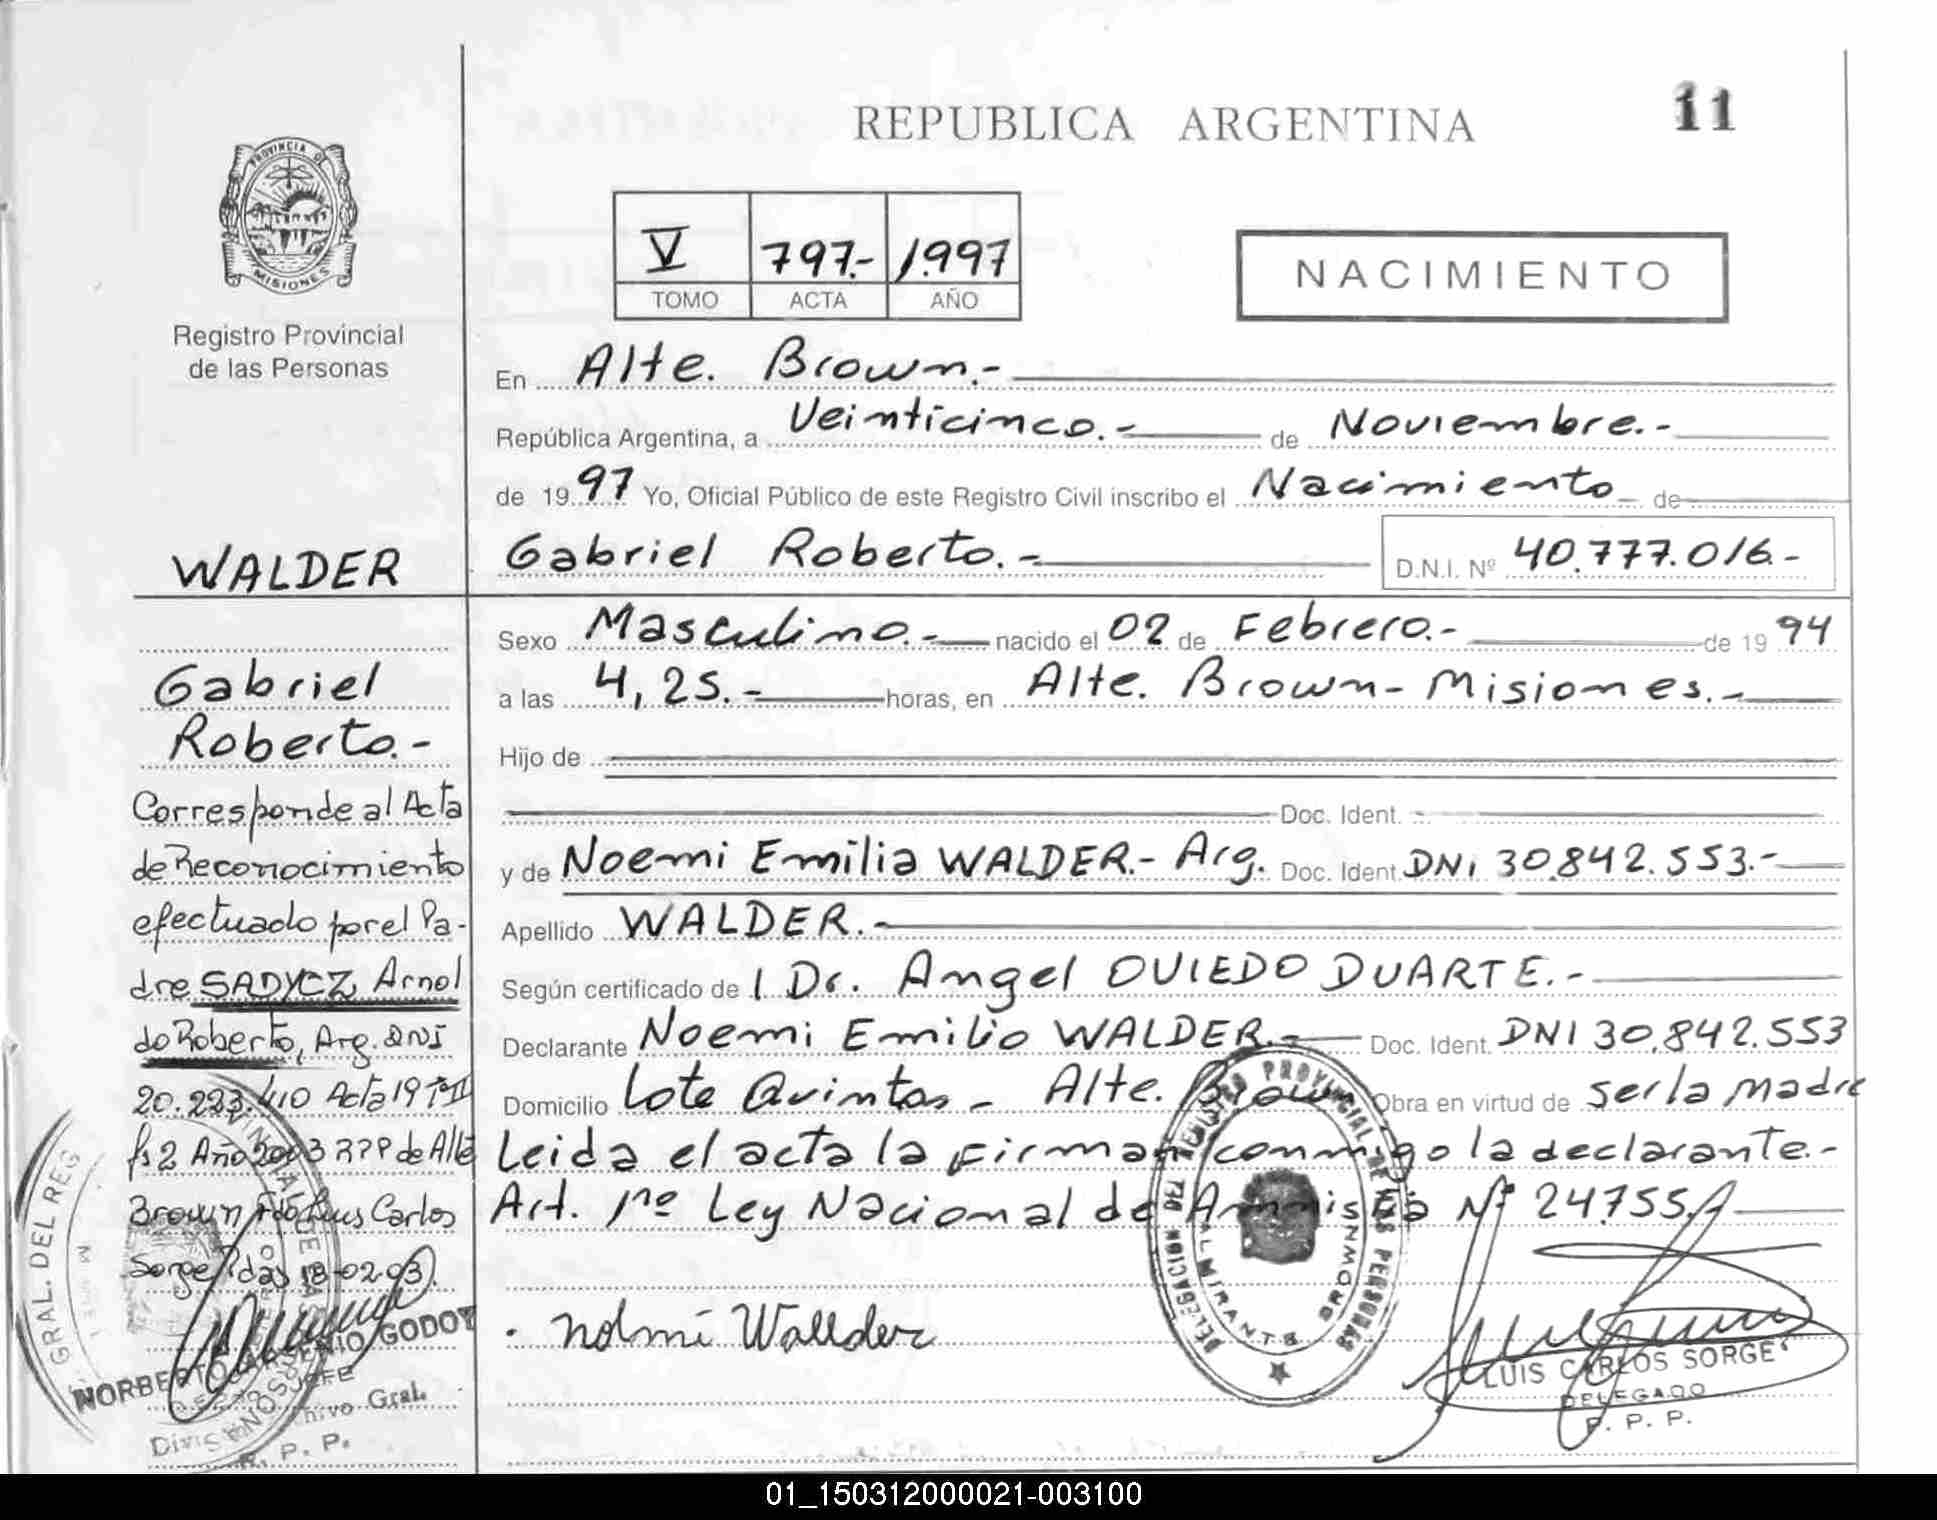 REPUBLICA ARGENTINA
11
PROVINCIA DE
MISIONES
Registro Provincial
de las Personas
V 797.- 1997
TOMO ACTA AÑO
NACIMIENTO
En Alte. Brown.-
República Argentina, a Veinticinco.- de Noviembre.-
de 1997 Yo, Oficial Público de este Registro Civil inscribo el Nacimiento de
Gabriel Roberto.- D.N.I. Nº 40.777.016.-
Sexo Masculino.- nacido el 02 de Febrero.- de 1994
a las 4,25.- horas, en Alte. Brown- Misiones.-
Hijo de
Doc. Ident.
y de Noemi Emilia WALDER.- Arg. Doc. Ident. DNi 30.842.553.-
Apellido WALDER.-
Según certificado de l Dr. Angel OVIEDO DUARTE.-
Declarante Noemi Emilio WALDER.- Doc. Ident. DNI 30.842.553
Domicilio Lote Quintas - Alte. Brown Obra en virtud de ser la Madre
Leida el acta la firman conmigo la declarante.-
Art. 1º Ley Nacional de Amnistia Nº 24755
WALDER
Gabriel
Roberto.-
Corresponde al Acta
de Reconocimiento
efectuado por el Pa-
dre SADYCZ, Arnol
do Roberto, Arg. DNI
20.223.410 Acta 19 Tº II
fs 2 Año 2003 RPP de Alte
Brown Fdo Luis Carlos
Sorge Pdas 18-02-03).
NORBERTO ARSENIO GODOY
JEFE
Gral.
R. P. P.
GRAL. DEL REG
DELEGACION DEL REGISTRO PROVINCIAL DE LAS PERSONAS
ALMIRANTE BROWN
LUIS CARLOS SORGE
DELEGADO
R. P. P.
01_150312000021-003100